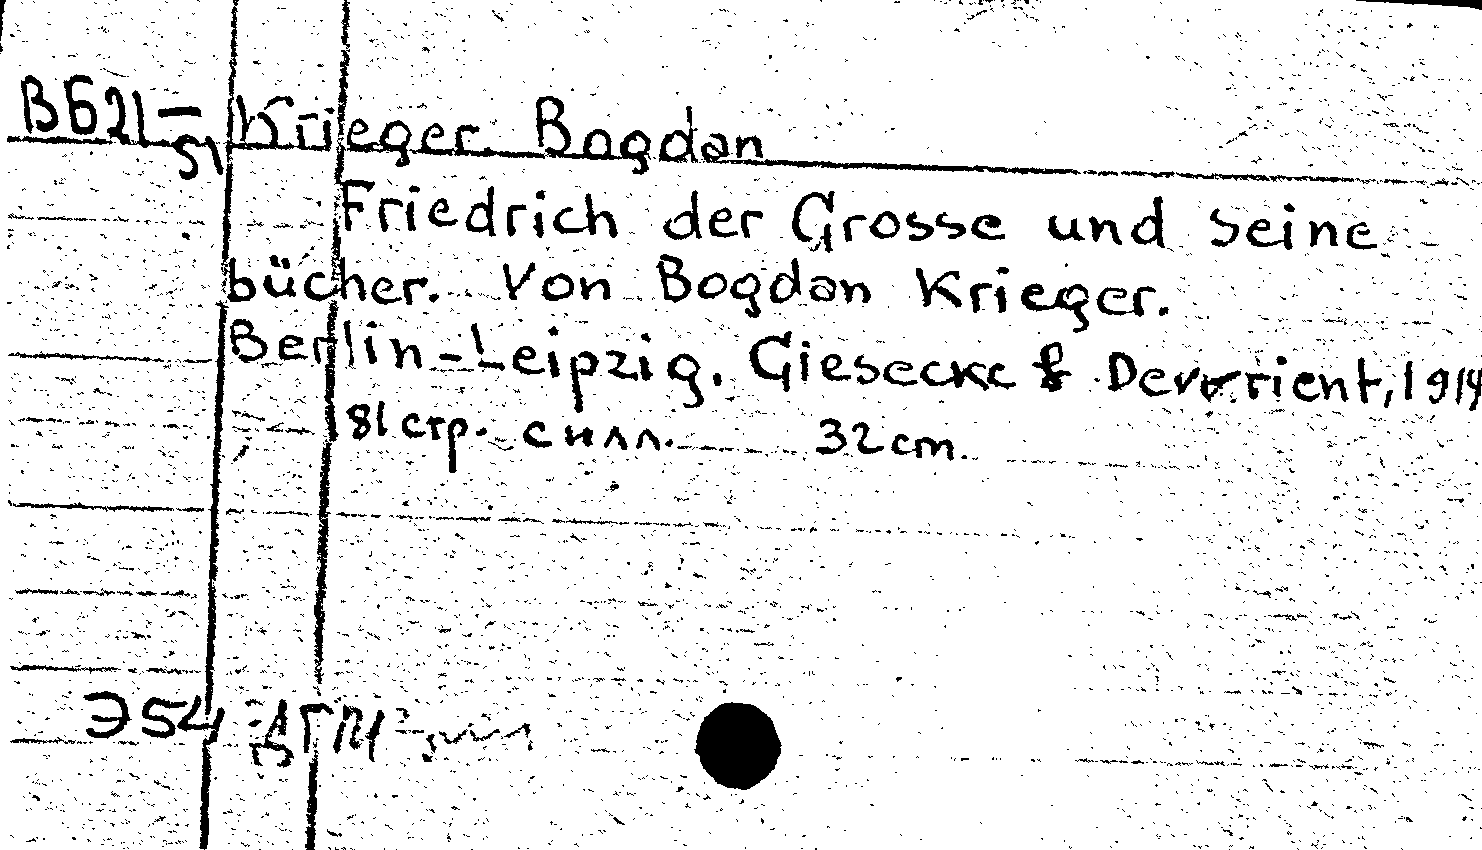 ВБ21-
51
Krieger. Bogdan
Friedrich der Grosse und seine
bücher. Von Bogdan Krieger.
Berlin-Leipzig. Giesecke & Devrient, 1914
181 стр. с илл. 32 cm.
Э54